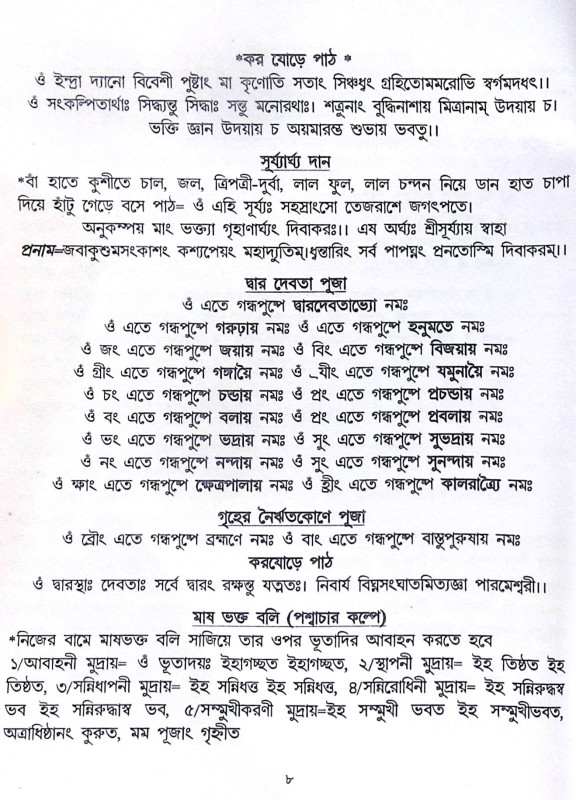 *কর যোড়ে পাঠ *
ওঁ ইন্দ্রা দ্যানো বিবেশী পুষ্টাং মা কৃণোতি সতাং সিঞ্চধৃং গ্রহিতোমমরোভি স্বর্গমদধৎ।।
ওঁ সংকল্পিতার্থাঃ সিদ্ধ্যন্তু সিদ্ধাঃ সন্তু মনোরথাঃ। শত্রুনাং বুদ্ধিনাশায় মিত্রানাম্ উদয়ায় চ।
ভক্তি জ্ঞান উদয়ায় চ অয়মারম্ভ শুভায় ভবতু।।
সূর্য্যার্ঘ্য দান
*বাঁ হাতে কুশীতে চাল, জল, ত্রিপত্রী-দুর্বা, লাল ফুল, লাল চন্দন নিয়ে ডান হাত চাপা
দিয়ে হাঁটু গেড়ে বসে পাঠ= ওঁ এহি সূর্য্যঃ সহস্রাংসো তেজরাশে জগৎপতে।
অনুকম্পয় মাং ভক্ত্যা গৃহাণার্ঘ্যং দিবাকরঃ।। এষ অর্ঘ্যঃ শ্রীসূর্য্যায় স্বাহা
প্রনাম=জবাকুশুমসংকাশং কশ্যপেয়ং মহাদ্যুতিম্।ধ্বন্তারিং সর্ব পাপঘ্নং প্রনতোস্মি দিবাকরম্।।
দ্বার দেবতা পূজা
ওঁ এতে গন্ধপুষ্পে দ্বারদেবতাভ্যো নমঃ
ওঁ এতে গন্ধপুষ্পে গরুড়ায় নমঃ ওঁ এতে গন্ধপুষ্পে হনুমতে নমঃ
ওঁ জং এতে গন্ধপুষ্পে জয়ায় নমঃ ওঁ বিং এতে গন্ধপুষ্পে বিজয়ায় নমঃ
ওঁ গ্রীং এতে গন্ধপুষ্পে গঙ্গায়ৈ নমঃ ওঁ ্যীং এতে গন্ধপুষ্পে যমুনায়ৈ নমঃ
ওঁ চং এতে গন্ধপুষ্পে চন্ডায় নমঃ ওঁ প্রং এতে গন্ধপুষ্পে প্রচন্ডায় নমঃ
ওঁ বং এতে গন্ধপুষ্পে বলায় নমঃ ওঁ প্রং এতে গন্ধপুষ্পে প্রবলায় নমঃ
ওঁ ভং এতে গন্ধপুষ্পে ভদ্রায় নমঃ ওঁ সুং এতে গন্ধপুষ্পে সুভদ্রায় নমঃ
ওঁ নং এতে গন্ধপুষ্পে নন্দায় নমঃ ওঁ সুং এতে গন্ধপুষ্পে সুনন্দায় নমঃ
ওঁ ক্ষাং এতে গন্ধপুষ্পে ক্ষেত্রপালায় নমঃ ওঁ হ্রীং এতে গন্ধপুষ্পে কালরাত্র্যৈ নমঃ
গৃহের নৈর্ঋতকোণে পূজা
ওঁ ব্রৌং এতে গন্ধপুষ্পে ব্রহ্মণে নমঃ ওঁ বাং এতে গন্ধপুষ্পে বাস্তুপুরুষায় নমঃ
করযোড়ে পাঠ
ওঁ দ্বারস্থাঃ দেবতাঃ সর্বে দ্বারং রক্ষন্তু যত্নতঃ। নিবার্য বিঘ্নসংঘাতমিত্যজ্ঞা পারমেশ্বরী।।
মাষ ভক্ত বলি (পশ্বাচার কল্পে)
*নিজের বামে মাষভক্ত বলি সাজিয়ে তার ওপর ভূতাদির আবাহন করতে হবে
১/আবাহনী মুদ্রায়= ওঁ ভূতাদয়ঃ ইহাগচ্ছত ইহাগচ্ছত, ২/স্থাপনী মুদ্রায়= ইহ তিষ্ঠত ইহ
তিষ্ঠত, ৩/সন্নিধাপনী মুদ্রায়= ইহ সন্নিধত্ত ইহ সন্নিধত্ত, ৪/সন্নিরোধিনী মুদ্রায়= ইহ সন্নিরুদ্ধস্ব
ভব ইহ সন্নিরুদ্ধাস্ব ভব, ৫/সম্মুখীকরণী মুদ্রায়=ইহ সম্মুখী ভবত ইহ সম্মুখীভবত,
অত্রাধিষ্ঠানং কুরুত, মম পূজাং গৃহ্নীত
৮